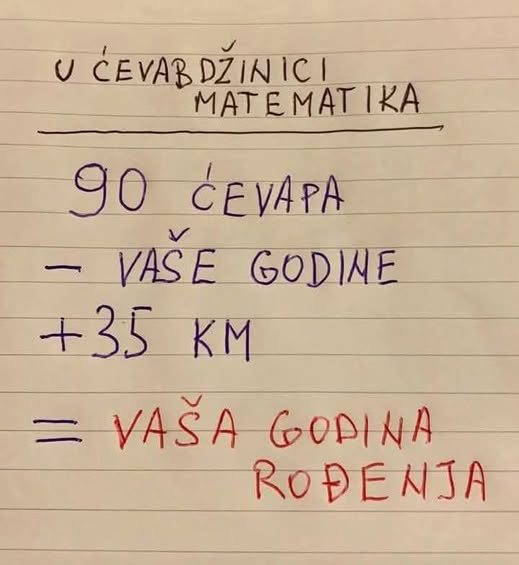 U ĆEVABDŽINICI
MATEMATIKA
90 ĆEVAPA
- VAŠE GODINE
+35 KM
= VAŠA GODINA
ROĐENJA